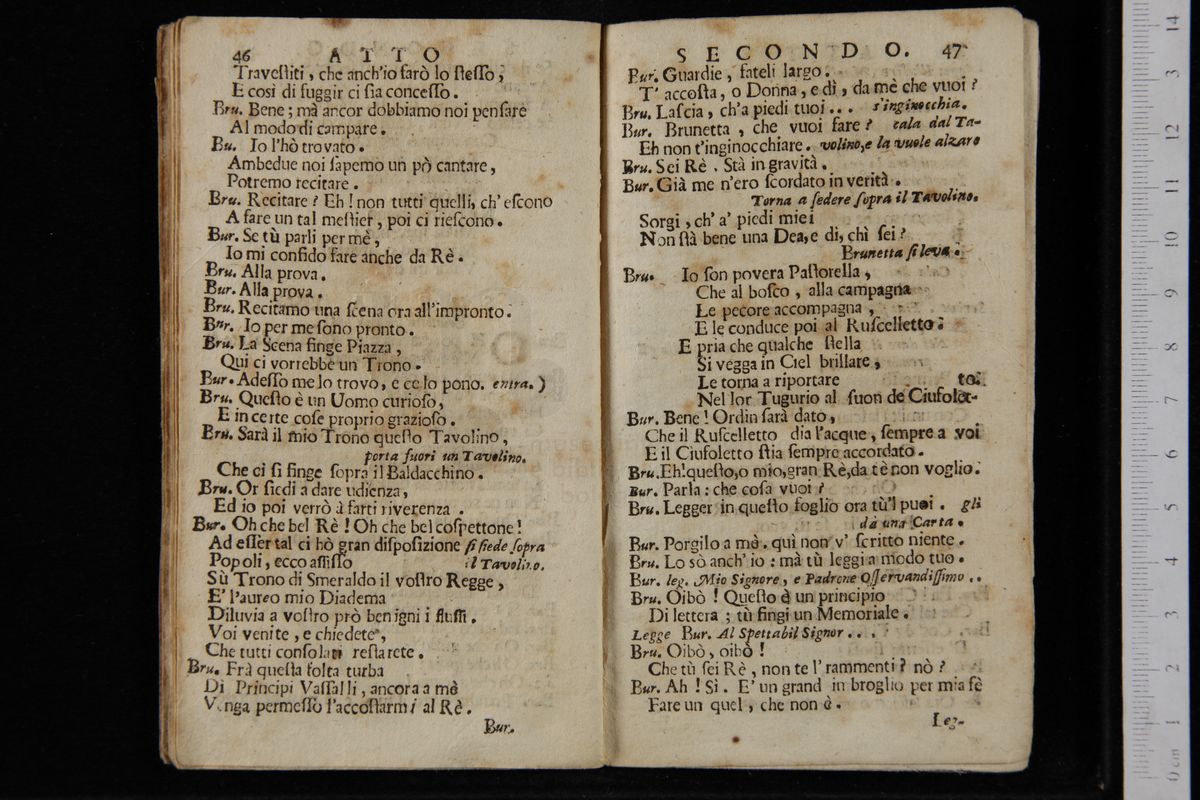 46 ATTO
Travestiti, che anch'io farò lo stesso;
E così di fuggir ci sia concesso.
Bru. Bene; mà ancor dobbiamo noi pensare
Al modo di campare.
Bu. Io l'hò trovato.
Ambedue noi sapemo un pò cantare,
Potremo recitare.
Bru. Recitare? Eh! non tutti quelli, ch'escono
A fare un tal mestier, poi ci riescono.
Bur. Se tù parli per mè,
Io mi confido fare anche da Rè.
Bru. Alla prova.
Bur. Alla prova.
Bru. Recitamo una scena ora all'impronto.
Bur. Io per me sono pronto.
Bru. La Scena finge Piazza,
Qui ci vorrebbe un Trono.
Bur. Adesso me lo trovo, e ce lo pono. entra.)
Bru. Questo è un Uomo curioso,
E in certe cose proprio grazioso.
Bru. Sarà il mio Trono questo Tavolino,
porta fuori un Tavolino.
Che ci si finge sopra il Baldacchino.
Bru. Or siedi a dare udienza,
Ed io poi verrò à farti riverenza.
Bur. Oh che bel Rè! Oh che bel cospettone!
Ad esser tal ci hò gran disposizione si siede sopra
Popoli, ecco assisso il Tavolino.
Sù Trono di Smeraldo il vostro Regge,
E' l'aureo mio Diadema
Diluvia a vostro prò benigni i flussi.
Voi venite, e chiedete,
Che tutti consolati restarete.
Bru. Frà questa folta turba
Di Principi Vassalli, ancora a mè
Venga permesso l'accostarmi al Rè.
Bur.
SECONDO. 47
Bur. Guardie, fateli largo.
T' accosta, o Donna, e dì, da mè che vuoi?
Bru. Lascia, ch'a piedi tuoi... s'inginocchia.
Bur. Brunetta, che vuoi fare? cala dal Ta-
Eh non t'inginocchiare. volino, e la vuole alzare
Bru. Sei Rè. Stà in gravità.
Bur. Già me n'ero scordato in verità.
Torna a sedere sopra il Tavolino.
Sorgi, ch' a' piedi miei
Non stà bene una Dea, e di, chì sei?
Brunetta si leva.
Bru. Io son povera Pastorella,
Che al bosco, alla campagna
Le pecore accompagna,
E le conduce poi al Ruscelletto:
E pria che qualche stella
Si vegga in Ciel brillare,
Le torna a riportare to.
Nel lor Tugurio al suon de Ciufolet-
Bur. Bene! Ordin sarà dato,
Che il Ruscelletto dia l'acque, sempre a voi
E il Ciufoletto stia sempre accordato.
Bru. Eh! questo, o mio, gran Rè, da tè non voglio.
Bur. Parla: che cosa vuoi?
Bru. Legger in questo foglio ora tù'l puoi. gli
dà una Carta.
Bur. Porgilo a mè. quì non v' scritto niente.
Bru. Lo sò anch' io: mà tù leggi a modo tuo.
Bur. leg. Mio Signore, e Padrone Osservandissimo..
Bru. Oibò! Questo è un principio
Di lettera; tù fingi un Memoriale.
Legge Bur. Al Spettabil Signor....
Bru. Oibò, oibò!
Che tù sei Rè, non te l' rammenti? nò?
Bur. Ah! Sì. E' un grand in broglio per mia fè
Fare un quel, che non è.
Leg-